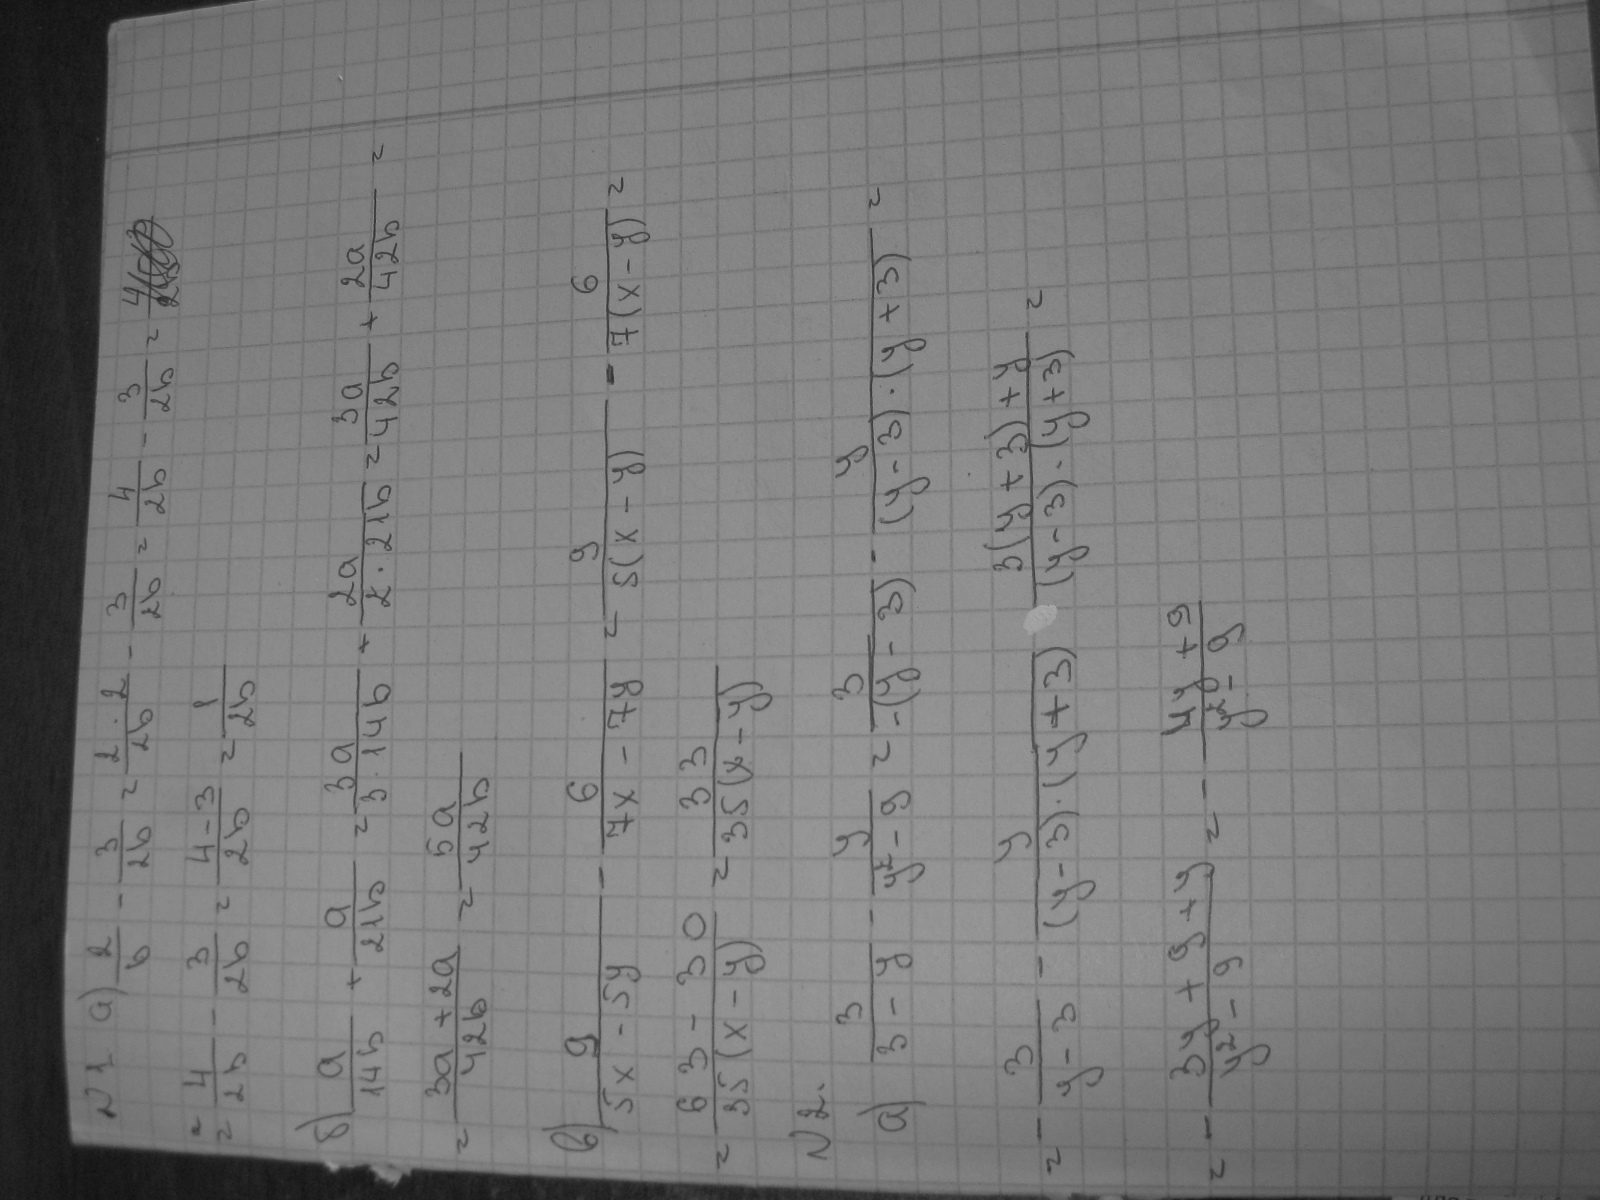 N1 а) 2/b - 3/2b = 2·2/2b - 3/2b = 4/2b - 3/2b =
= 4/2b - 3/2b = 4-3/2b = 1/2b
б) a/14b + a/21b = 3a/3·14b + 2a/2·21b = 3a/42b + 2a/42b =
= 3a+2a/42b = 5a/42b
в) 9/5x-5y - 6/7x-7y = 9/5(x-y) - 6/7(x-y) =
= 63-30/35(x-y) = 33/35(x-y)
N2.
а) 3/3-y - y/y²-9 = 3/-(y-3) - y/(y-3)·(y+3) =
= - 3/y-3 - y/(y-3)·(y+3) 3(y+3)+y/(y-3)·(y+3) =
= - 3y+9+y/y²-9 = - 4y+9/y²-9